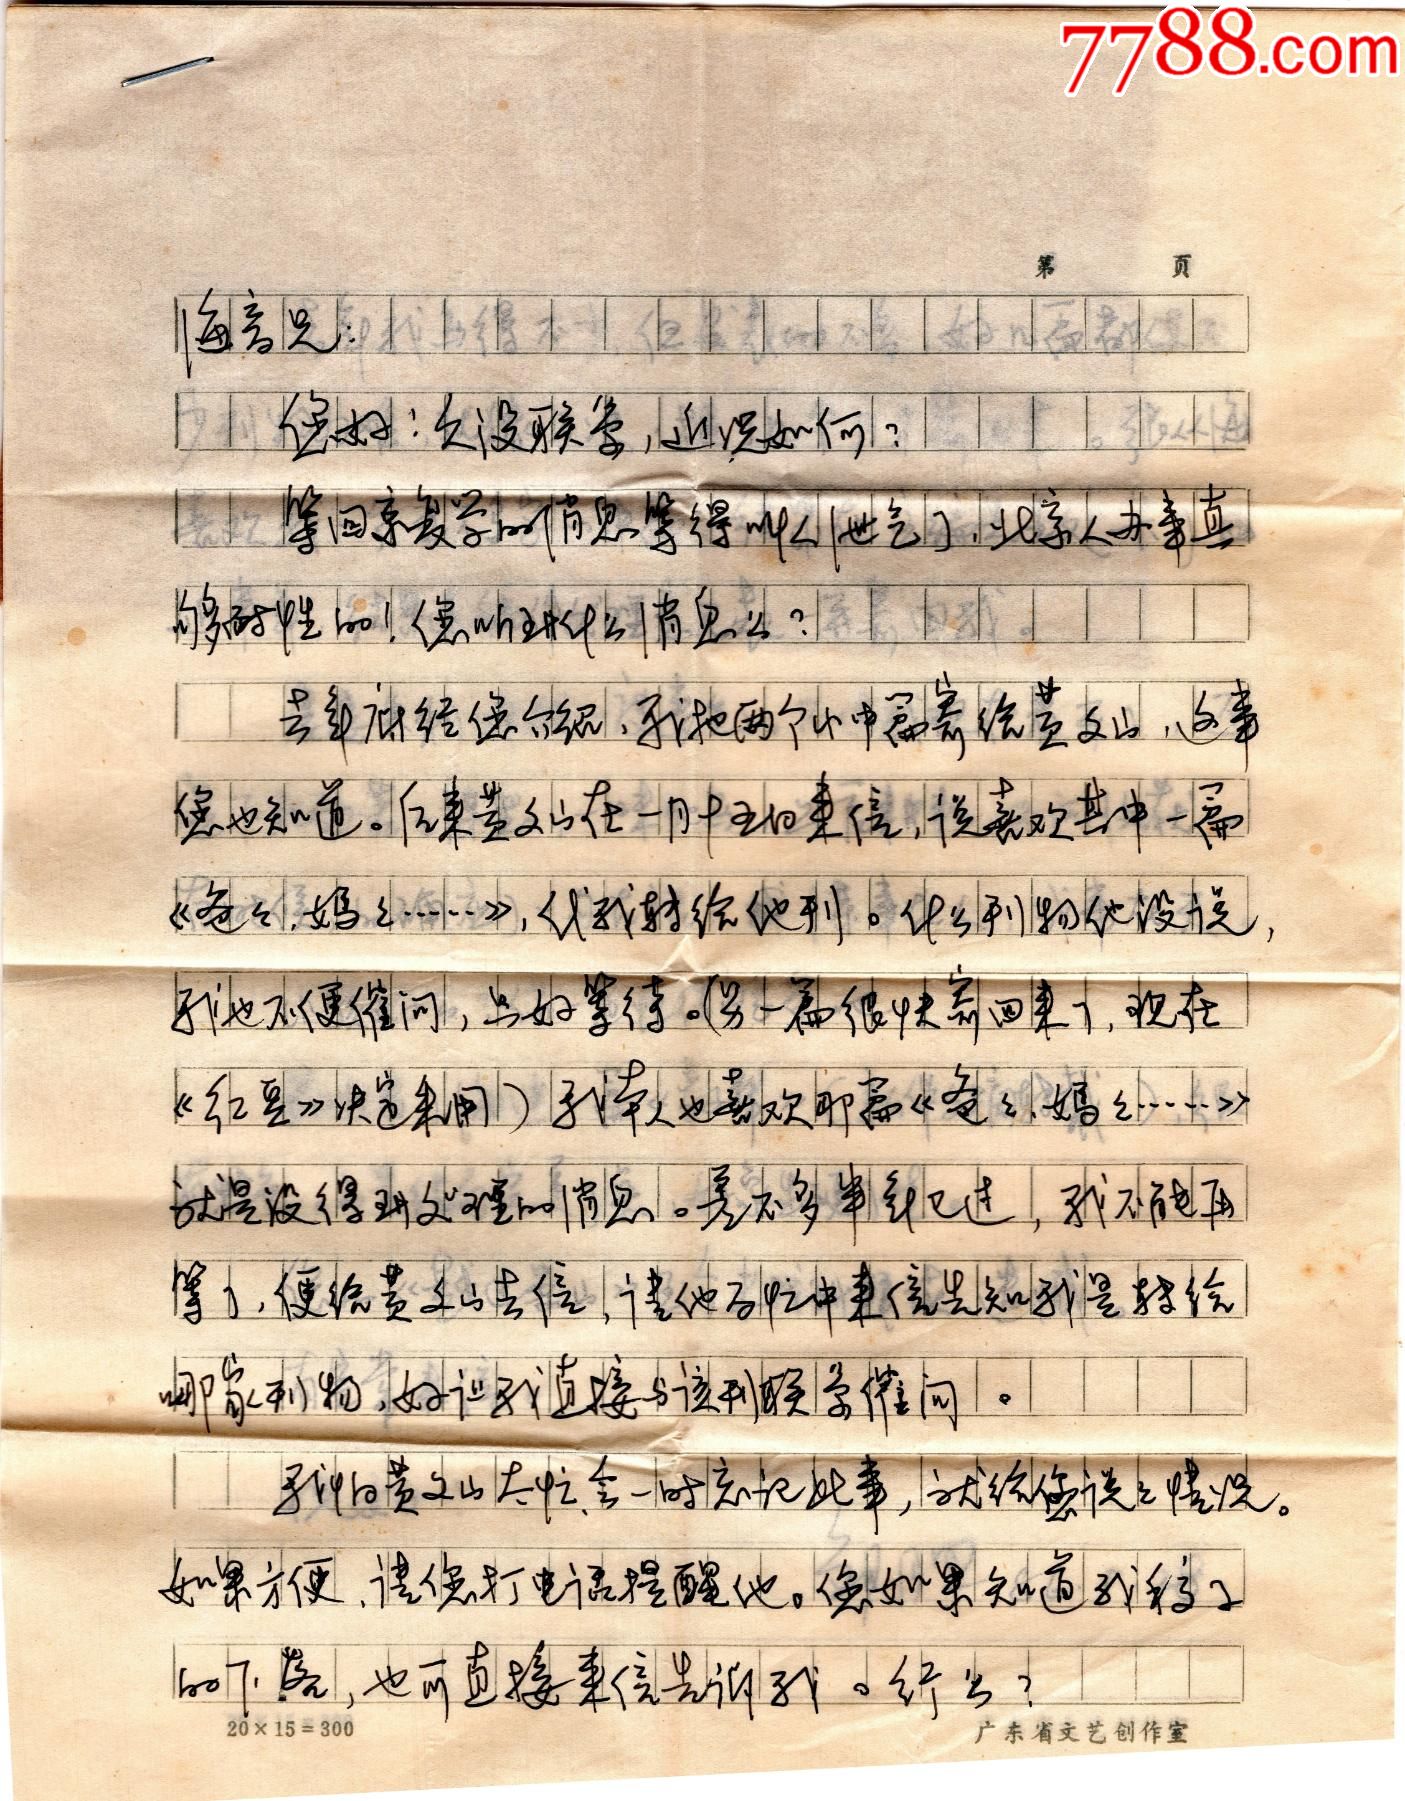 7788.com
第 页
海音兄：
您好！久没联络，近况如何？
等回京复学的消息等得叫人泄气了，北京人办事真
够耐性的！您听到什么消息么？
去年底经您介绍，我把两个小中篇寄给黄文山，这事
您也知道。后来黄文山在一月十五日来信，说喜欢其中一篇
《爸々、妈々……》，代我转给他刊。什么刊物他没说，
我也不便催问，只好等待。（另一篇很快寄回来了，现在
《红豆》决定采用）我本人也喜欢那篇《爸々、妈々……》
就是没得到处理的消息。差不多半年已过，我不能再
等了，便给黄文山去信，请他百忙中来信告知我是转给
哪家刊物，好让我直接与该刊联系催问。
我怕黄文山太忙会一时忘记此事，就给您说々情况。
如果方便，请您打电话提醒他。您如果知道我稿子
的下落，也可直接来信告诉我。行么？
20×15=300
广东省文艺创作室